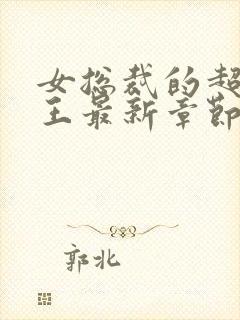 女总裁的超
王最新章節
郭北